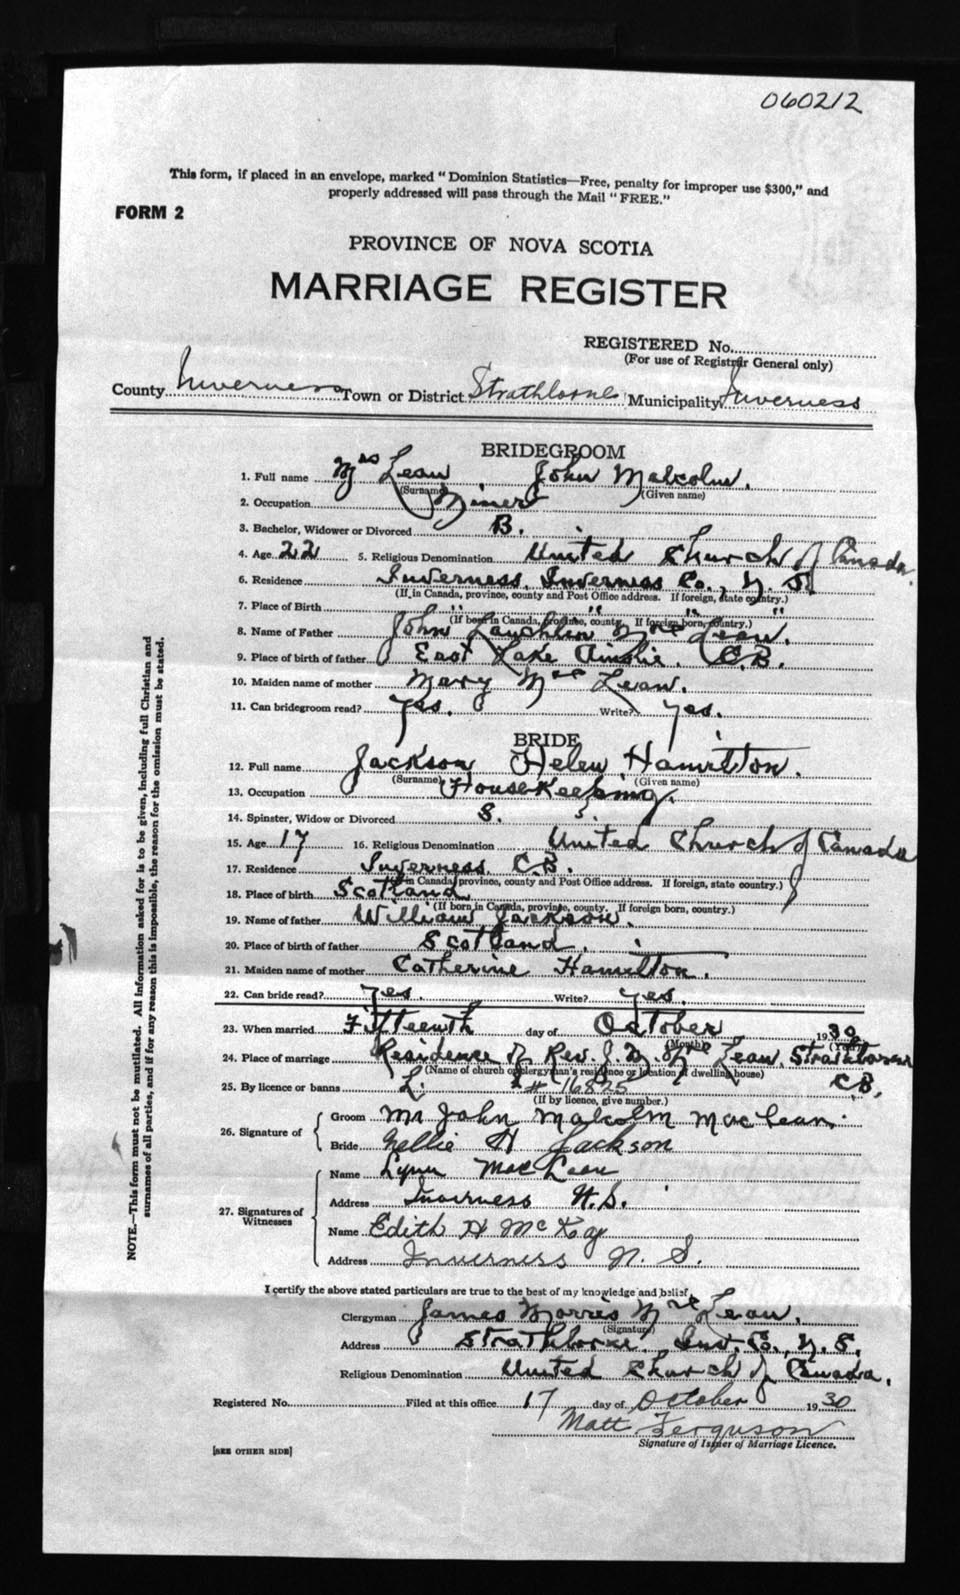 060212
This form, if placed in an envelope, marked " Dominion Statistics—Free, penalty for improper use $300," and
properly addressed will pass through the Mail " FREE."
FORM 2
PROVINCE OF NOVA SCOTIA
MARRIAGE REGISTER
REGISTERED No.
(For use of Registrar General only)
County Inverness Town or District Strathlorne Municipality Inverness
BRIDEGROOM
1. Full name Mac Lean John Malcolm.
(Surname) (Given name)
2. Occupation Miner
3. Bachelor, Widower or Divorced B.
4. Age 22 5. Religious Denomination United Church of Canada
6. Residence Inverness, Inverness Co., N. S.
(If in Canada, province, county and Post Office address. If foreign, state country.)
7. Place of Birth " " " "
(If born in Canada, province, county. If foreign born, country.)
8. Name of Father John Lauchlin Mac Lean.
9. Place of birth of father East Lake Ainslie. C.B.
10. Maiden name of mother Mary Mac Lean.
11. Can bridegroom read? Yes. Write? Yes.
BRIDE
12. Full name Jackson Helen Hamilton.
(Surname) (Given name)
13. Occupation Housekeeping.
14. Spinster, Widow or Divorced S.
15. Age 17 16. Religious Denomination United Church of Canada
17. Residence Inverness C.B.
(If in Canada, province, county and Post Office address. If foreign, state country.)
18. Place of birth Scotland
(If born in Canada, province, county. If foreign born, country.)
19. Name of father William Jackson.
20. Place of birth of father Scotland.
21. Maiden name of mother Catherine Hamilton.
22. Can bride read? Yes. Write? Yes.
23. When married Fifteenth day of October 1930
(Month) (Year)
24. Place of marriage Residence of Rev. J. M. Mac Lean, Strathlorne
(Name of church or clergyman's residence or location of dwelling house)
C.B.
25. By licence or banns L. # 16825
(If by licence, give number.)
26. Signature of
Groom Mr John Malcolm MacLean.
Bride Nellie H Jackson
27. Signatures of Witnesses
Name Lynn MacLean
Address Inverness N.S.
Name Edith H McKay
Address Inverness N. S.
I certify the above stated particulars are true to the best of my knowledge and belief,
Clergyman James Morris Mac Lean.
(Signature)
Address Strathlorne, Inv. Co., N. S.
Religious Denomination United Church of Canada.
Registered No. Filed at this office 17 day of October 1930
Matt Ferguson
Signature of Issuer of Marriage Licence.
[SEE OTHER SIDE]
NOTE.—This form must not be mutilated. All information asked for is to be given, including full Christian and
surnames of all parties, and if for any reason this is impossible, the reason for the omission must be stated.